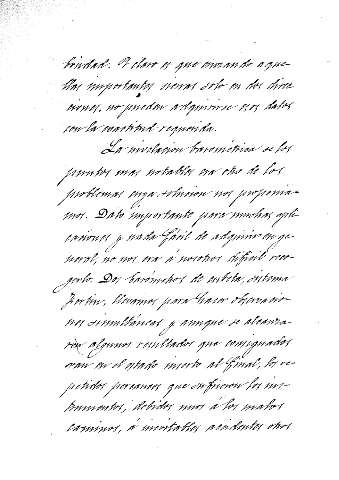 bridad. Y claro es que cruzando aque-
llas importantes sierras solo en dos direc-
ciones, no pueden adquirirse esos datos
con la exactitud requerida.
La nivelacion barométrica de los
puntos mas notables era otro de los
problemas cuya solucion nos proponia-
mos. Dato importante para muchas apli-
caciones y nada fácil de adquirir en ge-
neral, no nos era á nosotros dificil reco-
gerlo. Dos barómetros de cubeta, sistema
Fortin, llevamos para hacer observacio-
nes simultáneas y aunque se alcanza-
ron algunos resultados que consignados
van en el estado inserto al final, los re-
petidos percances que sufrieron los ins-
trumentos, debidos unos á los malos
caminos, á inevitables accidentes otros